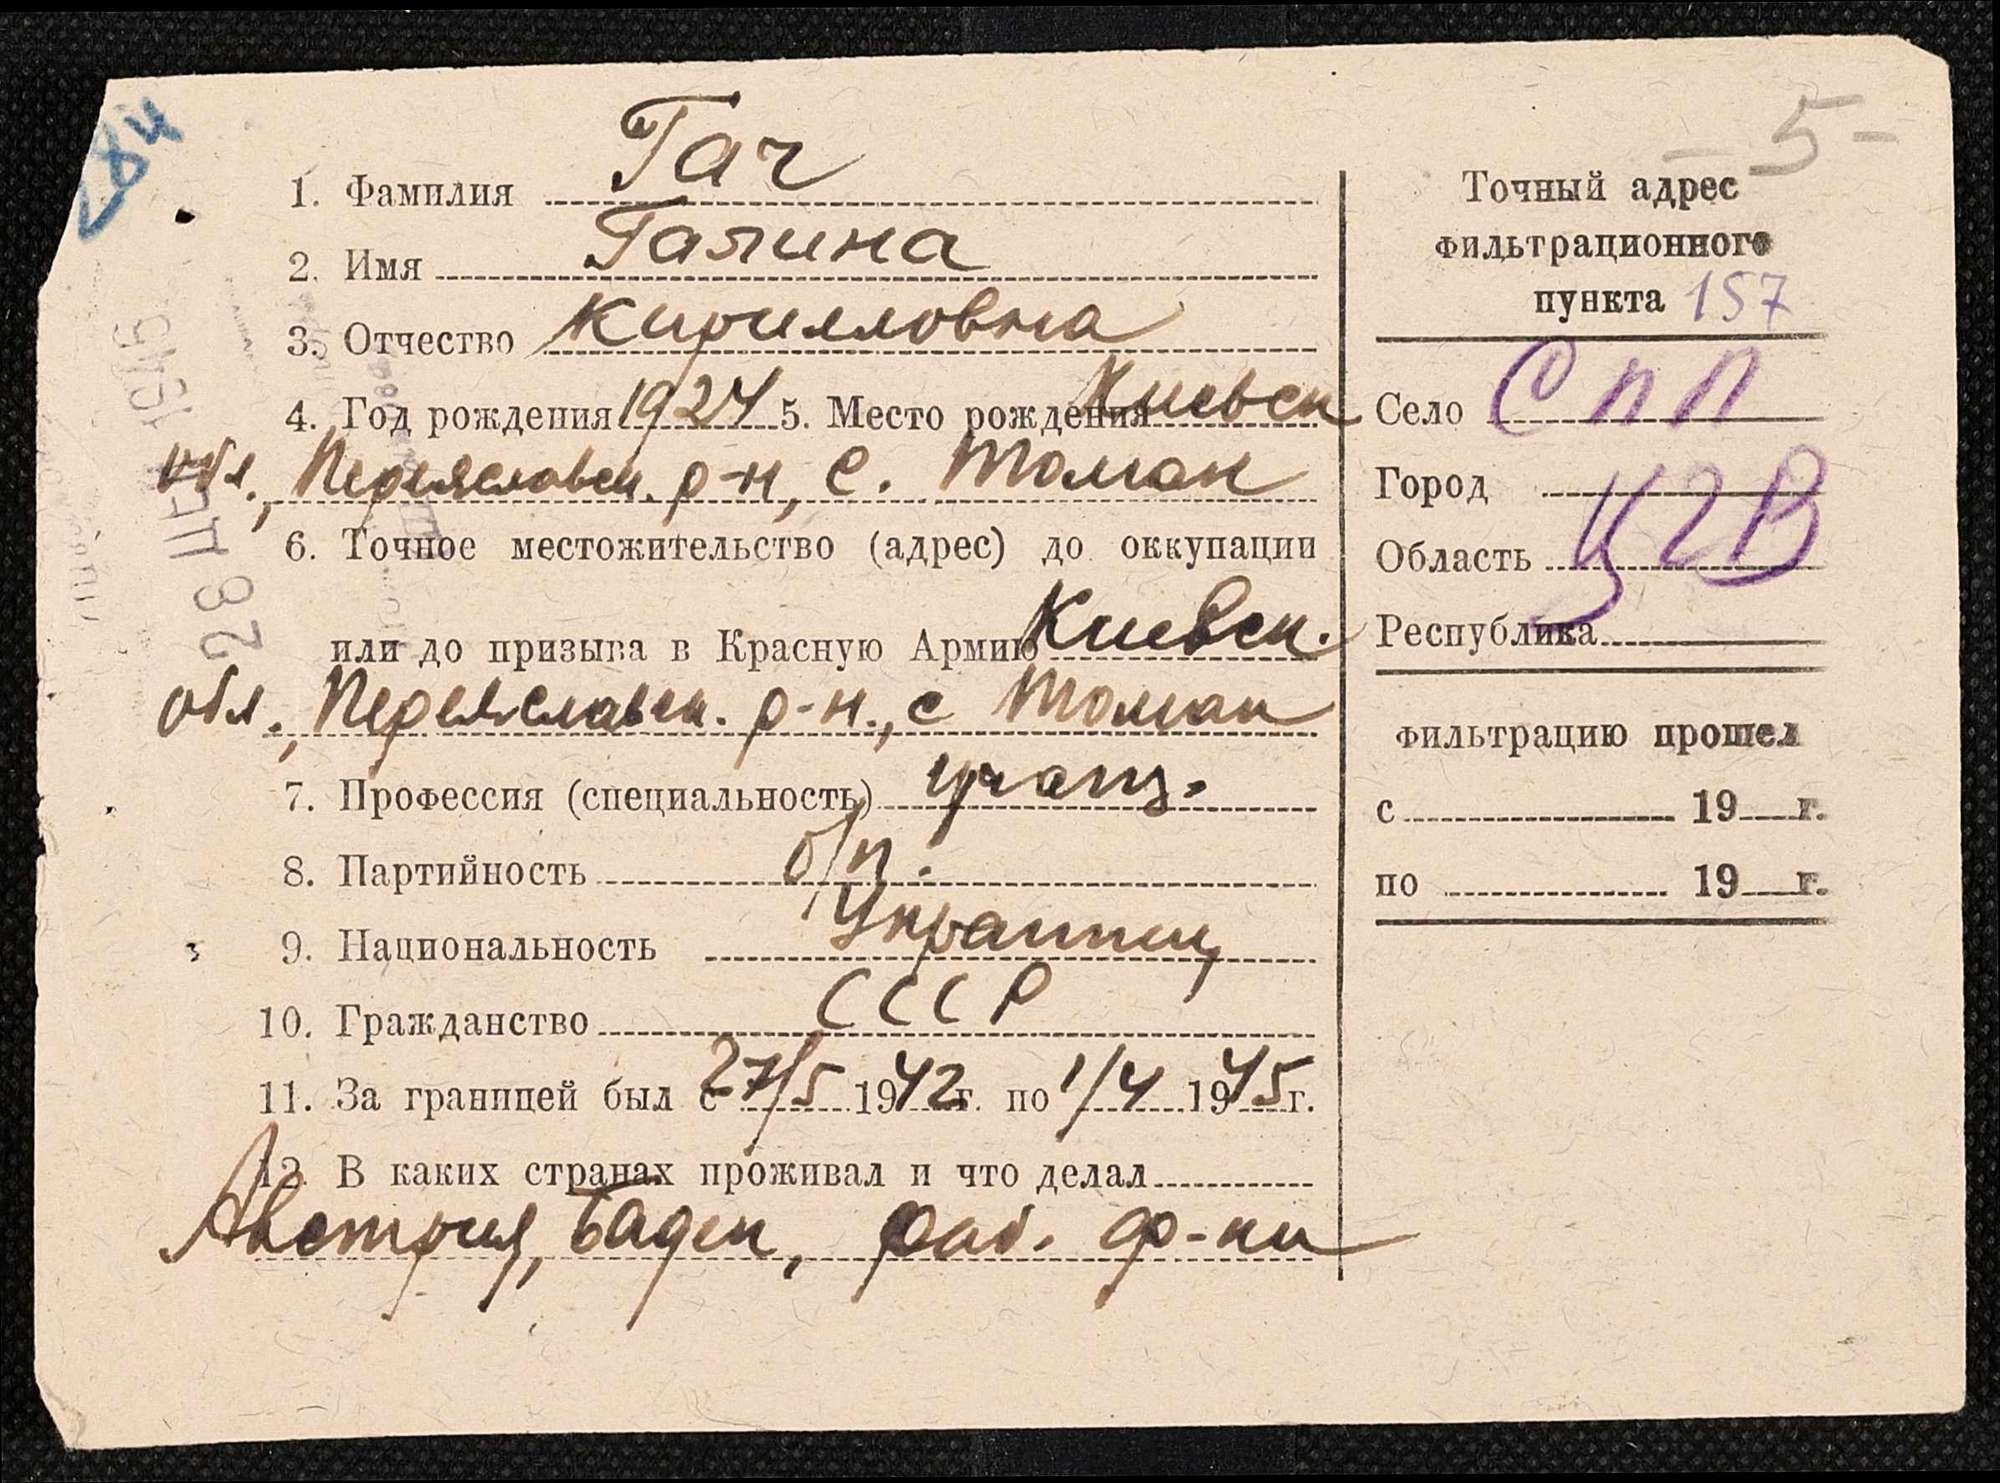 284
- 5 -
1. Фамилия Гач
2. Имя Галина
3. Отчество Кирилловна
4. Год рождения 1924 5. Место рождения Киевск
обл., Переяславск. р-н, с. Томан
6. Точное местожительство (адрес) до оккупации
или до призыва в Красную Армию Киевск.
обл., Переяславск. р-н., с Томан
7. Профессия (специальность) учащ.
8. Партийность б/п.
9. Национальность Украинец
10. Гражданство СССР
11. За границей был с 27/5 1942 г. по 1/4 1945 г.
12. В каких странах проживал и что делал
Австрия, Баден, раб. ф-ки
Точный адрес
фильтрационного
пункта 157
Село СПП
Город
Область ЦГВ
Республика
Фильтрацию прошел
с 19 г.
по 19 г.
28 ДЕК 1945